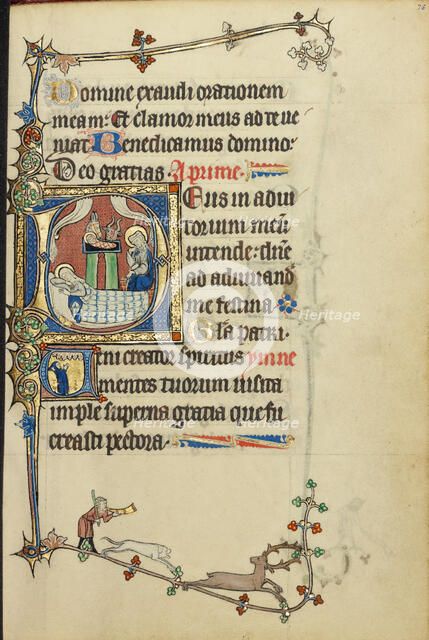 26
Domine exaudi orationem
meam. Et clamor meus ad te ue
niat. Benedicamus domino.
Deo gratias. A prime.
Deus in adiu
torium meu
intende: dne
ad adiuuand
me festina
Gla patri
Ueni creator spiritus ymne
mentes tuorum uisita
imple superna gratia que tu
creasti pectora.
Heritage
Heritage
Heritage
Heritage